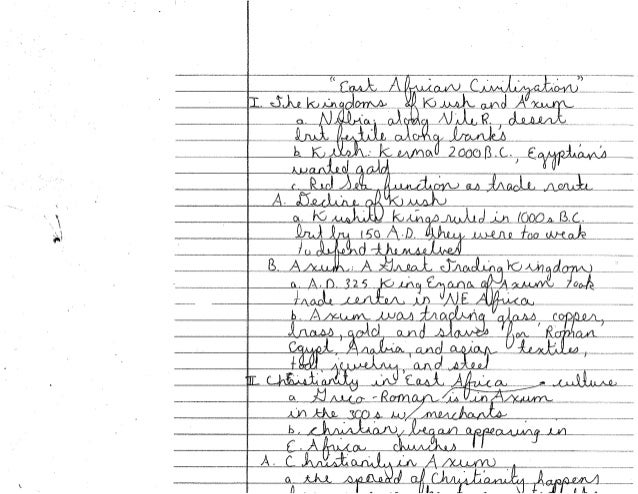 "East African Civilization"
I. The Kingdoms of Kush and Axum
a. Nubia; along Nile R., desert
but fertile along banks
b. Kush: Kerma 2000 B.C., Egyptian's
wanted gold
c. Red Sea function as trade route
A. Decline of Kush
a. Kushite Kings ruled in 1000s B.C.
but by 150 A.D. they were too weak
to defend themselves
B. Axum: A Great Trading Kingdom
a. A.D. 325 King Ezana of Axum took
trade center in NE Africa
b. Axum was trading glass, copper,
brass, gold, and slaves for Roman
Egypt, Arabia, and asian textiles,
tool, jewelry, and steel
II. Christianity in East Africa culture
a. Greco-Roman is in Axum
in the 300s w/ merchants
b. christian began appearing in
E. Africa churches
A. Christianity in Axum
a. the spread of Christianity happens